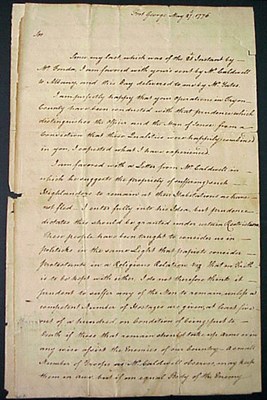 Fort George May 27. 1776
Sir
Since my last which was of the 21 Instant by
Mr. Fonda, I am favored with yours sent by Mr. Caldwell
to Albany and this Day delivered to me by Mr. Yates
I am perfectly happy that your Operations in Tryon
County have been conducted with that prudence which
distinguishes the Officer and the Man of honor from a
Conviction that these Qualities were happily combined
in you I expected what I have experienced
I am favored with a Letter from Mr. Caldwell in
which he suggests the propriety of suffering such
Highlanders to remain at their Habitations as have
not fled. I enter fully into his Idea, but prudence
dictates this should be granted under certain Restrictions
These people have been taught to consider us in
politicks in the same Light that Papists consider
Protestants in a Religious Relation viz. that no Faith
is to be kept with either. I do not therefore think it
prudent to suffer any of the Men to remain unless a
competent Number of Hostages are given, at least five
out of a hundred on Condition of being put to
Death if those that remain should take up Arms or in
any wise assist the Enemies of our Country. A small
Number of Troops as Mr. Caldwell observes may keep
them in awe but if an equal Body of the Enemy